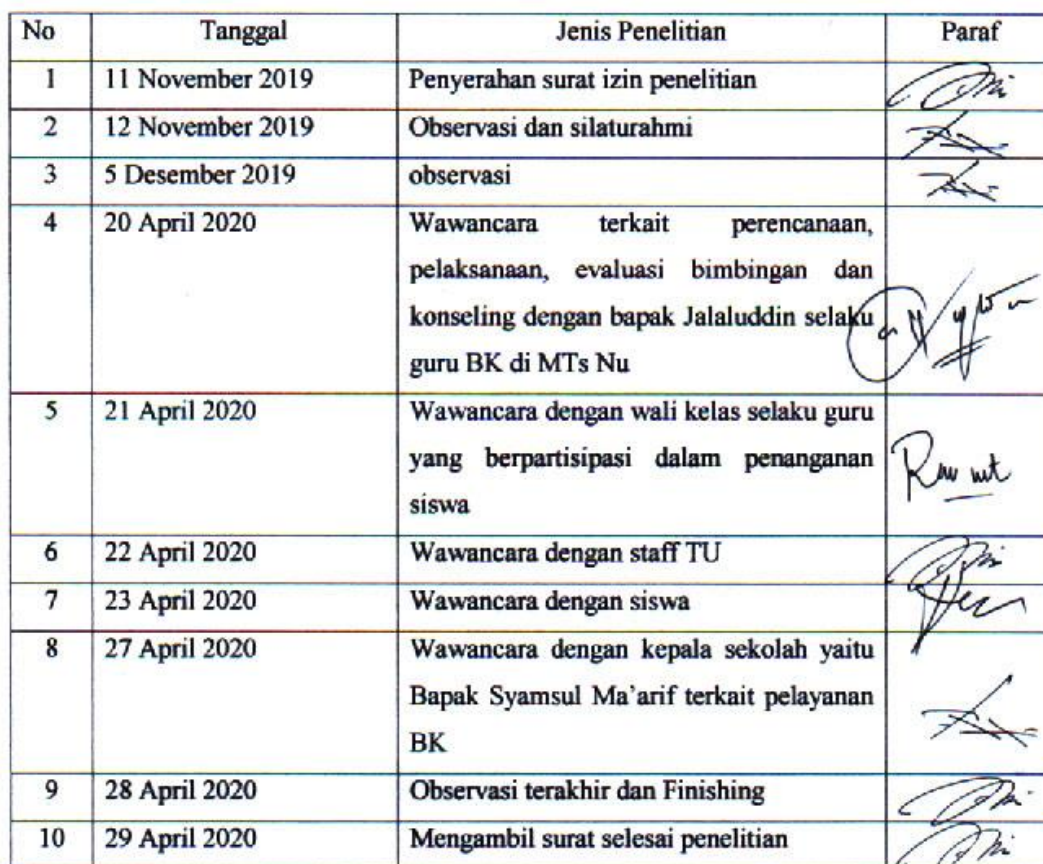 No Tanggal Jenis Penelitian Paraf
1 11 November 2019 Penyerahan surat izin penelitian
2 12 November 2019 Observasi dan silaturahmi
3 5 Desember 2019 observasi
4 20 April 2020 Wawancara terkait perencanaan,
pelaksanaan, evaluasi bimbingan dan
konseling dengan bapak Jalaluddin selaku
guru BK di MTs Nu
5 21 April 2020 Wawancara dengan wali kelas selaku guru
yang berpartisipasi dalam penanganan
siswa
6 22 April 2020 Wawancara dengan staff TU
7 23 April 2020 Wawancara dengan siswa
8 27 April 2020 Wawancara dengan kepala sekolah yaitu
Bapak Syamsul Ma’arif terkait pelayanan
BK
9 28 April 2020 Observasi terakhir dan Finishing
10 29 April 2020 Mengambil surat selesai penelitian